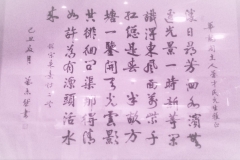 勝日尋芳泗水濱無
邊光景一時新等閒
識得東風面萬紫千
紅總是春半畝方
塘一鑒開天光雲影
共徘徊問渠那得清
如許為有源頭活水
來